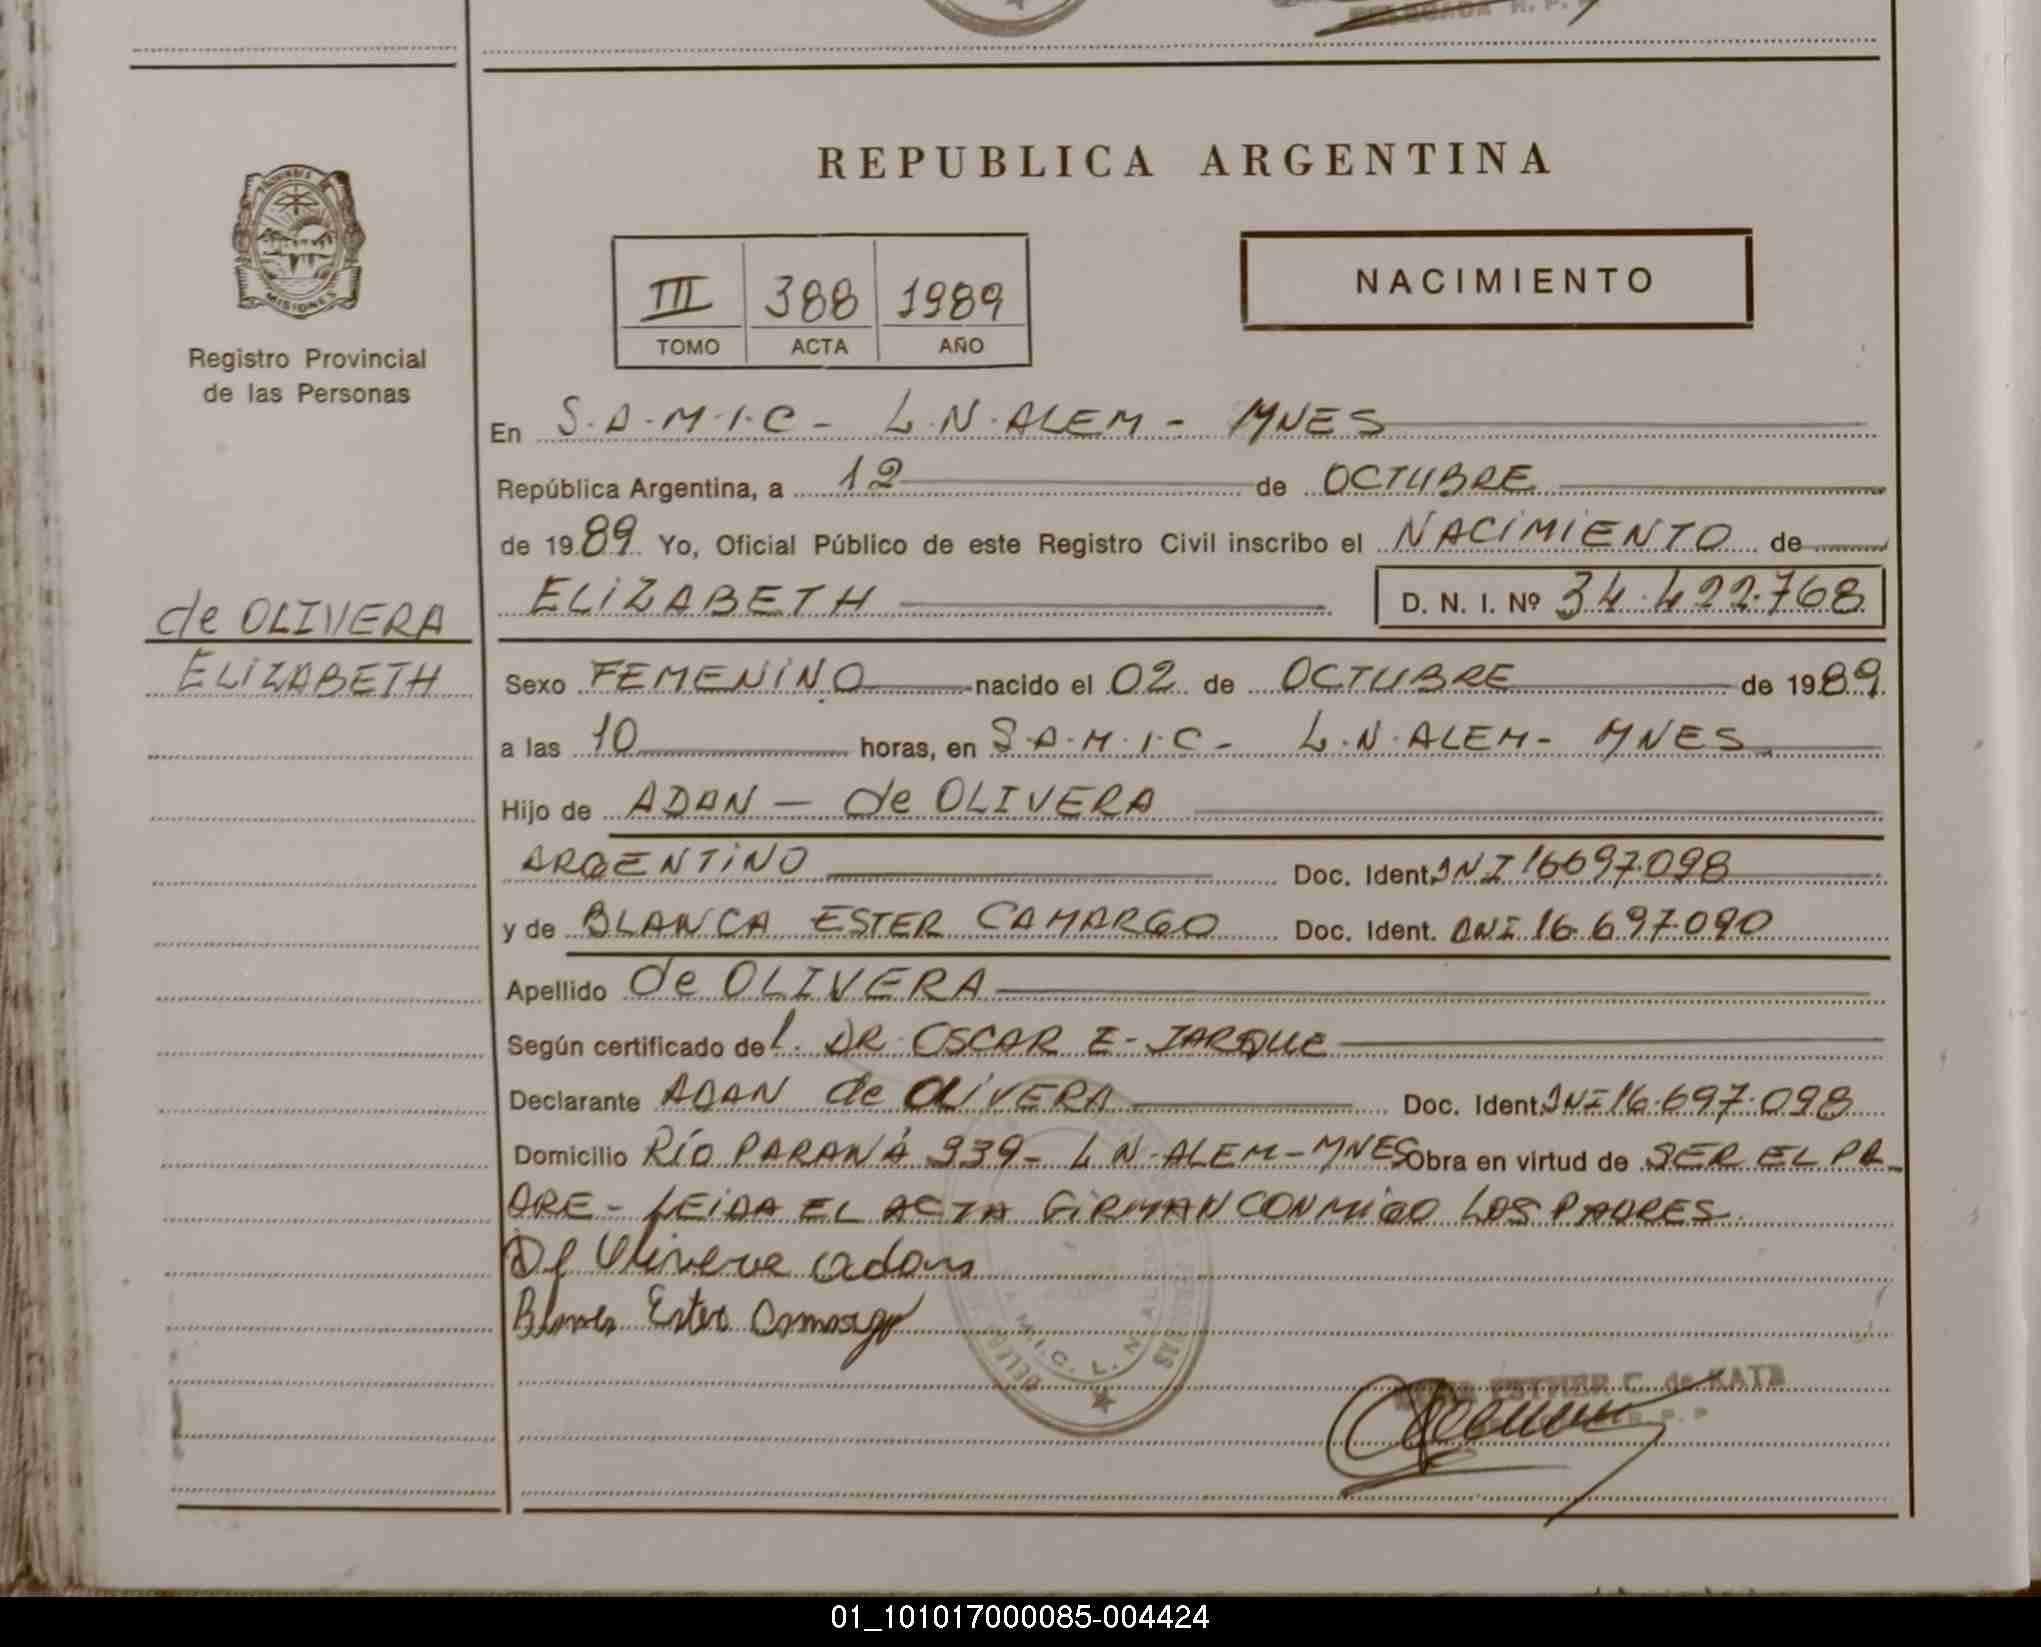 REPUBLICA ARGENTINA
III 388 1989
TOMO ACTA AÑO
NACIMIENTO
MISIONES
Registro Provincial
de las Personas
de OLIVERA
ELIZABETH
En S.A.M.I.C - L.N.ALEM - MNES
República Argentina, a 12 de OCTUBRE
de 1989 Yo, Oficial Público de este Registro Civil inscribo el NACIMIENTO de
ELIZABETH D. N. I. Nº 34.422.768
Sexo FEMENINO nacido el 02 de OCTUBRE de 1989
a las 10 horas, en S.A.M.I.C - L.N.ALEM - MNES
Hijo de ADAN - de OLIVERA
ARGENTINO Doc. Ident. DNI 16697.098
y de BLANCA ESTER CAMARGO Doc. Ident. DNI 16.697.090
Apellido de OLIVERA
Según certificado del. DR. OSCAR E. JARQUE
Declarante ADAN de OLIVERA Doc. Ident. DNI 16.697.098
Domicilio RÍO PARANÁ 939 - L N.ALEM - MNES Obra en virtud de SER EL PA-
DRE - LEIDA EL ACTA FIRMAN CONMIGO LOS PADRES
Olivera adan
Blanca Ester Camargo
M.I.C. L. N. AL
ESTHER C. de KATZ
01_101017000085-004424